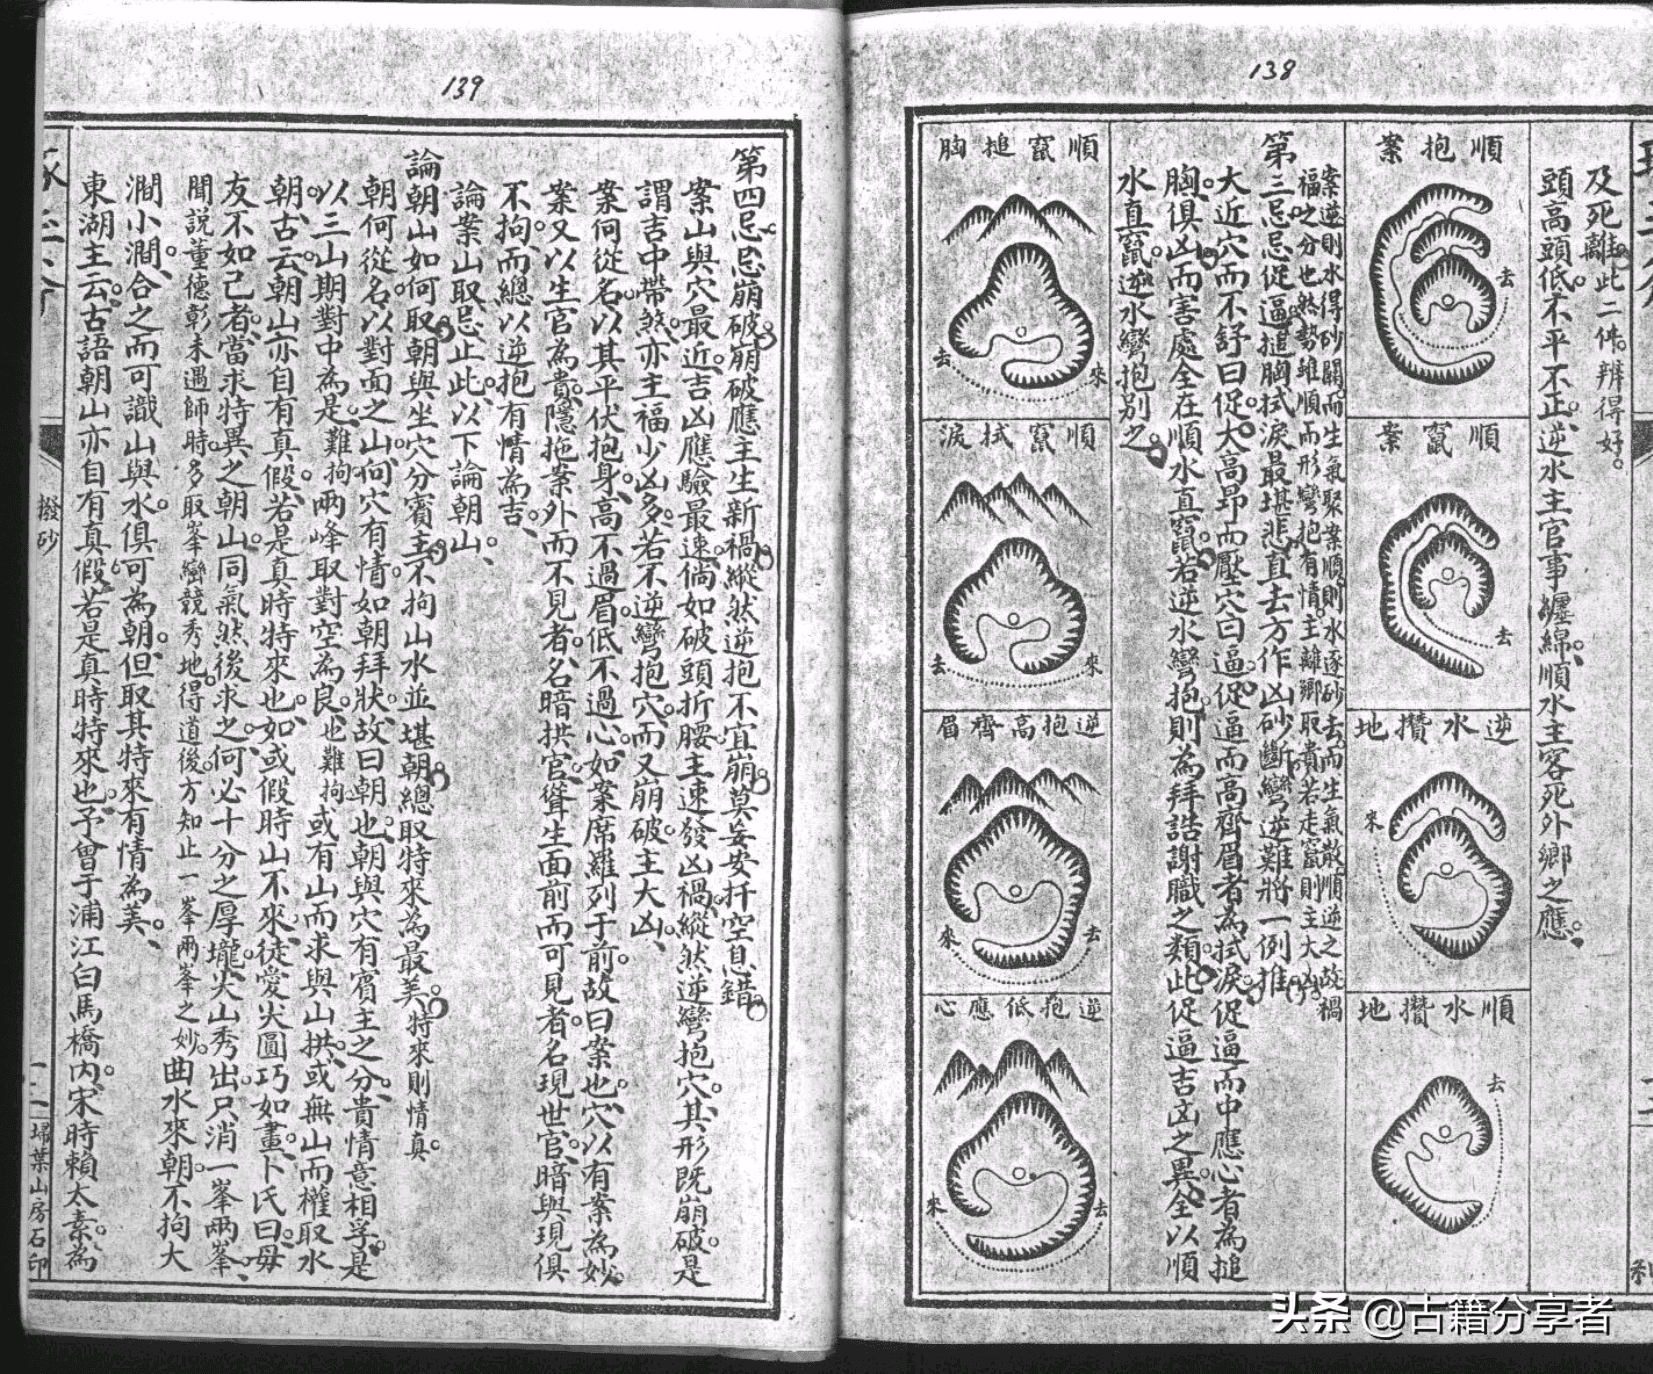 138
及死離此二件辨得好
頭高頭低不平不正逆水主官事纏綿順水主客死外鄉之應
順抱案
去
順竄案
去
逆水攢地
來
順水攢地
去
案逆則水得砂關而生氣聚案順則水逐砂去而生氣散順逆之故禍
福之分也然勢雖順而形彎抱有情主離鄉取貴若走竄則主大凶
第三忌忌促逼搥胸拭淚最堪悲直去方作凶砂斷彎逆難將一例推
大近穴而不舒曰促大高昂而壓穴曰逼促逼而高齊眉者為拭淚促逼而中應心者為搥
胸俱凶而害處全在順水直竄若逆水彎抱則為拜誥謝職之類此促逼吉凶之異全以順
水直竄逆水彎抱別之
順竄搥胸
去
來
順竄拭淚
去
來
逆抱高齊眉
來
去
逆抱低應心
來
去
139
第四忌忌崩破崩破應主生新禍縱然逆抱不宜崩莫妄安扦空息錯
案山與穴最近吉凶應驗最速倘如破頭折腰主速發凶禍縱然逆彎抱穴其形既崩破是
謂吉中帶煞亦主福少凶多若不逆彎抱穴而又崩破主大凶
案何從名以其平伏抱身高不過眉低不過心如案席羅列于前故曰案也穴以有案為妙
案又以生官為貴隱拖案外而不見者名暗拱官聳生面前而可見者名現世官暗與現俱
不拘而總以逆抱有情為吉
論案山取忌止此以下論朝山
論朝山如何取朝與坐穴分賓主不拘山水並堪朝總取特來為最美特來則情真
朝何從名以對面之山向穴有情如朝拜狀故曰朝也朝與穴有賓主之分貴情意相孚是
以三山期對中為是難拘兩峰取對空為良也難拘或有山而求與山拱或無山而權取水
朝古云朝山亦自有真假若是真時特來也如或假時山不來徒愛尖圓巧如畫卜氏曰毋
友不如己者當求特異之朝山同氣然後求之何必十分之厚壠尖山秀出只消一峯兩峯
聞說董德彰未遇師時多取峯巒競秀地得道後方知止一峯兩峯之妙曲水來朝不拘大
澗小澗合之而可識山與水俱可為朝但取其特來有情為美
東湖主云古語朝山亦自有真假若是真時特來也予曾于浦江白馬橋內宋時賴太素為
撥砂
掃葉山房石印
头条 @古籍分享者